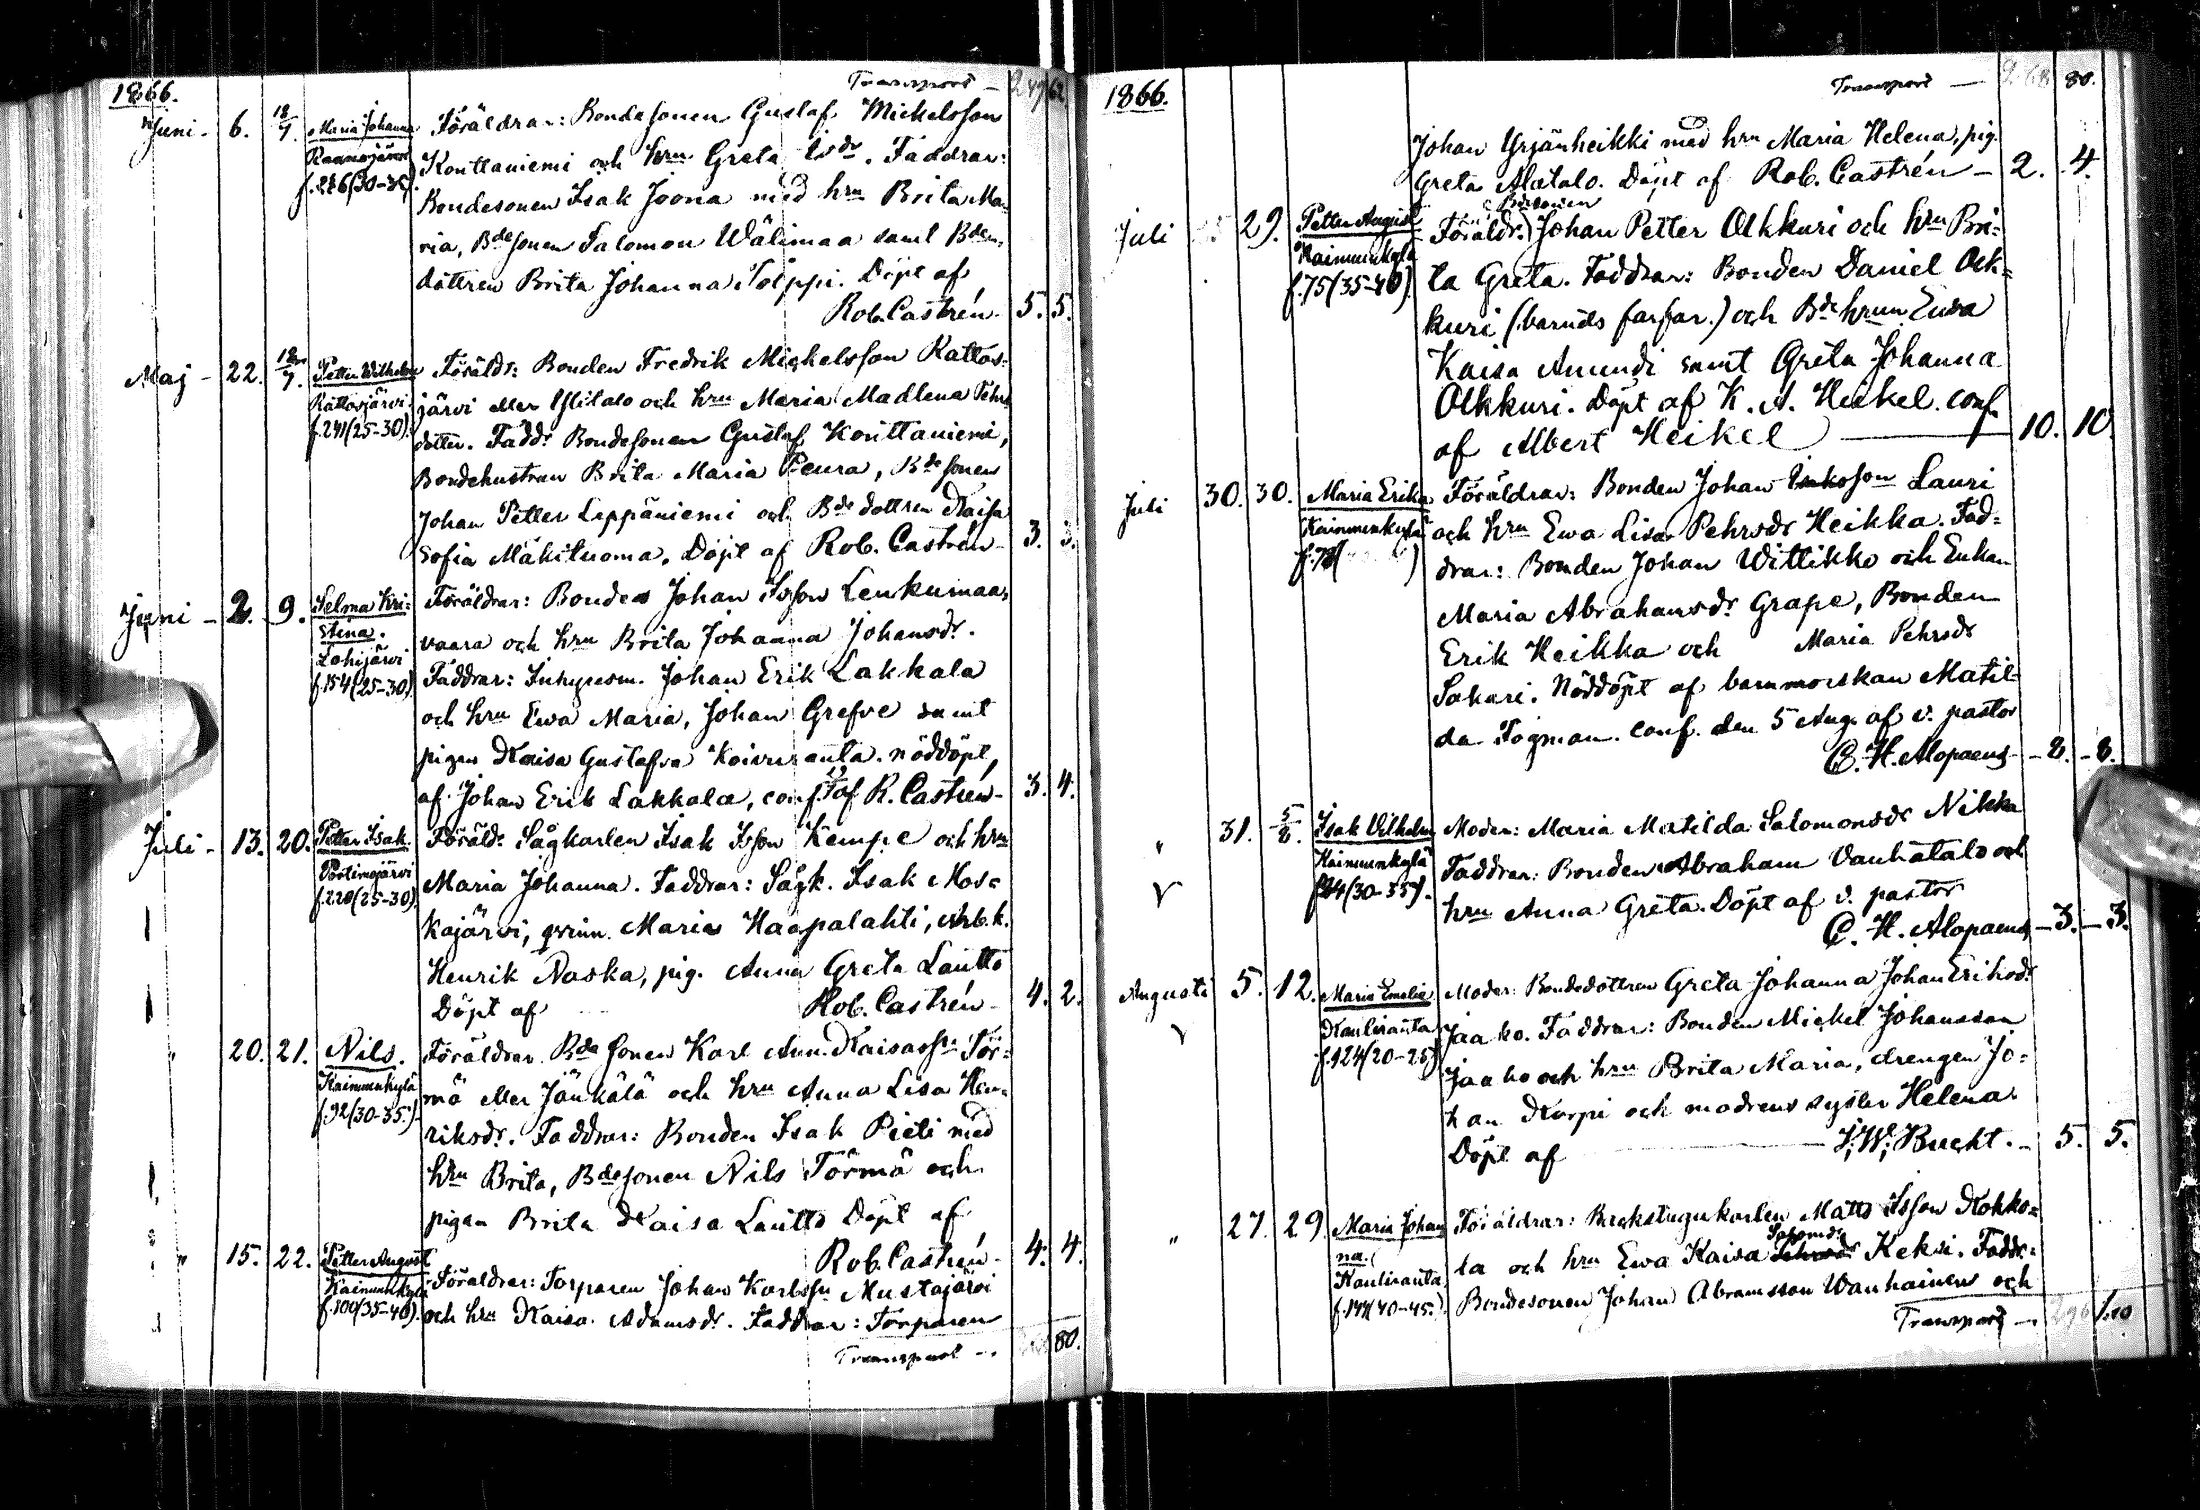 1866. Transport — 249 62.
Juni - 6. 18/7. Maria Johanna Föräldrar: Bondesonen Gustaf Mickelsson
Raanujärvi Konttaniemi och hru Greta Isdr. Faddrar:
f.286(30-35). Bondesonen Isak Joona med hru Brita Ma-
ria, Bdesonen Salomon Wälimaa samt Bden-
dottren Brita Johanna Tolppi. Döpt af
Rob. Castrén. 5. 5.
Maj - 22. 18/7. Petter Wilhelm Föräldr: Bonden Fredrik Mickelsson Rattos-
Rattosjärvi järvi eller Ylitalo och hru Maria Madlena Pehrs
f.241(25-30). dotter. Faddr Bondesonen Gustaf Konttaniemi,
Bondehustrun Brita Maria Peura, Bdesonen
Johan Petter Leppäniemi och Bdedottren Kaisa
Sofia Mäkituoma. Döpt af Rob. Castrén - 3. 3.
Juni - 2. 9. Selma Kri- Föräldrar: Bonden Johan Isson Lenkumaa-
stina. vaara och hru Brita Johanna Johansdr.
Lohijärvi Faddrar: Inhysesm. Johan Erik Lakkala
f.154(25-30) och hru Ewa Maria, Johan Grefve samt
pigan Kaisa Gustafva Koivuranta. nöddöpt,
af Johan Erik Lakkala, conf. af R. Castrén - 3. 4.
Juli - 13. 20. Petter Isak. Föräldr Sågkarlen Isak Isson Kempe och hru
Portimojärvi Maria Johanna. Faddrar: Sågk. Isak Mos-
f.220(25-30) kajärvi, qvinn. Maria Haapalahti, Arb.k.
Henrik Naska, pig. Anna Greta Lautto
Döpt af Rob. Castrén - 4. 2.
" 20. 21. Nils. Föräldrar Bdesonen Karl Ann. Kaisasson Tör-
Kainuunkylä mä eller Jänkälä och hru Anna Lisa Hen-
f.92(30-35). riksdr. Faddrar: Bonden Isak Pieti med
hru Brita, Bdesonen Nils Törmä och
pigan Brita Kaisa Lautto Döpt af
Rob. Castrén - 4. 4.
" 15. 22. Petter August Föräldrar: Torparen Johan Karlsson Mustajärvi
Kainuunkylä
f.100(35-40). och hru Kaisa Adamsdr. Faddrar: Torparen
Transport — 80.
1866. Transport — 268 80.
Johan Yrjänheikki med hru Maria Helena, pig.
Greta Alatalo. Döpt af Rob. Castrén - 2. 4.
Bdesonen
Juli 29. Petter August Föräldr.) Johan Petter Olkkuri och hru Bri-
Kainuunkylä ta Greta. Faddrar: Bonden Daniel Olk-
f.75(35-40). kuri (barnets farfar.) och Bdehrun Ewa
Kaisa Anundi samt Greta Johanna
Olkkuri. Döpt af K. A. Heikel. conf.
af Albert Heikel — 10. 10.
Juli 30. 30. Maria Erika Föräldrar: Bonden Johan Eriksson Lauri
Kainuunkylä och hru Ewa Lisa Pehrsdr Heikka. Fad-
f.78( ) drar: Bonden Johan Wittikko och Enkan
Maria Abrahamsdr Grape, Bonden
Erik Heikka och Maria Pehrsdr
Sakari. Nöddöpt af barnmorskan Matil-
da Fogman. conf. den 5 Aug. af v. pastor
C. H. Alopaeus - 8. - 8.
" 31. 5/8. Isak Vilhelm Moder: Maria Matilda Salomonsdr Nikka
V Kainuunkylä Faddrar: Bonden Abraham Vanhatalo och
f.94(30-35). hru Anna Greta. Döpt af v. pastor
C. H. Alopaeus - 3. - 3.
Augusti 5. 12. Maria Emelia Moder: Bondedottren Greta Johanna Johan Eriksdr
V Kauliranta Jaako. Faddrar: Bonden Mickel Johansson
f.124(20-25) Jaako och hru Brita Maria, drengen Jo-
han Korpi och modrens syster Helena.
Döpt af — J. W. Bucht. - 5. 5.
" 27. 29. Maria Johan- Föräldrar: Backstugukarlen Matts Isson Kokko-
na. la och hru Ewa Kaisa Keksi. Faddr-
Kauliranta
f.144(40-45.) Bondesonen Johan Abramsson Wanhainen och
Transport — 296 1.10